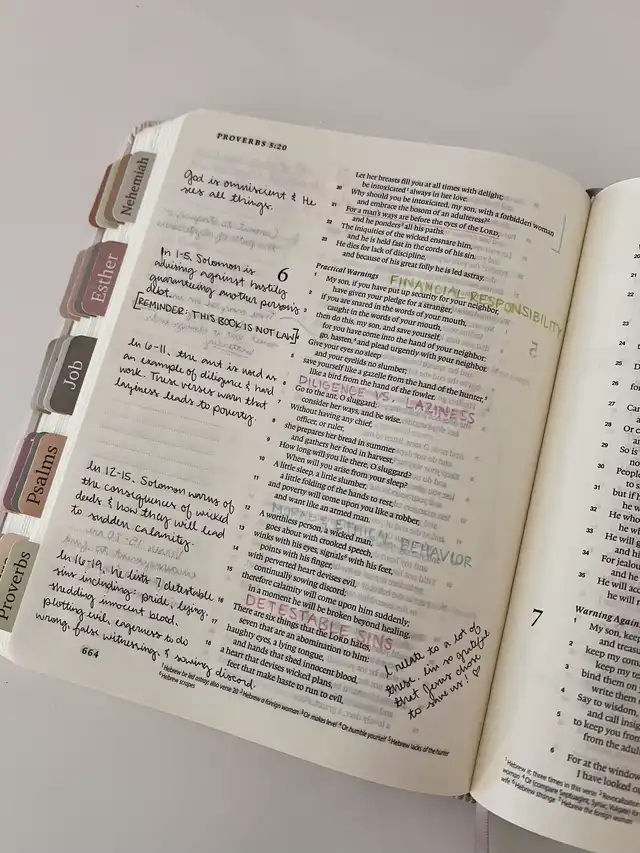 PROVERBS 5:20
Nehemiah
Esther
Job
Psalms
Proverbs
God is omniscient & He
sees all things.
In 1-5, Solomon is
advising against hastily
guaranteeing another person's
debt.
[REMINDER: THIS BOOK IS NOT LAW]
In 6-11, the ant is used as
an example of diligence & hard
work. These verses warn that
laziness leads to poverty.
In 12-15, Solomon warns of
the consequences of wicked
deeds & how they will lead
to sudden calamity.
In 16-19, he lists 7 detestable
sins including: pride, lying,
shedding innocent blood,
plotting evil, eagerness to do
wrong, false witnessing, & sowing discord.
664
Let her breasts fill you at all times with delight;
be intoxicated¹ always in her love.
20 Why should you be intoxicated, my son, with a forbidden woman
and embrace the bosom of an adulteress?²
21 For a man's ways are before the eyes of the LORD,
and he ponders³ all his paths.
22 The iniquities of the wicked ensnare him,
and he is held fast in the cords of his sin.
23 He dies for lack of discipline,
and because of his great folly he is led astray.
6
Practical Warnings
FINANCIAL RESPONSIBILITY
1 My son, if you have put up security for your neighbor,
have given your pledge for a stranger,
2 if you are snared in the words of your mouth,
caught in the words of your mouth,
3 then do this, my son, and save yourself,
for you have come into the hand of your neighbor:
go, hasten,⁴ and plead urgently with your neighbor.
4 Give your eyes no sleep
and your eyelids no slumber;
5 save yourself like a gazelle from the hand of the hunter,⁵
like a bird from the hand of the fowler.
DILIGENCE VS. LAZINESS
6 Go to the ant, O sluggard;
consider her ways, and be wise.
7 Without having any chief,
officer, or ruler,
8 she prepares her bread in summer
and gathers her food in harvest.
9 How long will you lie there, O sluggard?
When will you arise from your sleep?
10 A little sleep, a little slumber,
a little folding of the hands to rest,
11 and poverty will come upon you like a robber,
and want like an armed man.
MORAL & ETHICAL BEHAVIOR
12 A worthless person, a wicked man,
goes about with crooked speech,
13 winks with his eyes, signals⁶ with his feet,
points with his finger,
14 with perverted heart devises evil,
continually sowing discord;
15 therefore calamity will come upon him suddenly;
in a moment he will be broken beyond healing.
DETESTABLE SINS
16 There are six things that the LORD hates,
seven that are an abomination to him:
17 haughty eyes, a lying tongue,
and hands that shed innocent blood,
18 a heart that devises wicked plans,
feet that make haste to run to evil,
I relate to a lot of
these. I'm so grateful
that Jesus chose
to save us! ♡
¹Hebrew be led astray; also verse 20 ²Hebrew a foreign woman ³Or makes level ⁴Or humble yourself ⁵Hebrew lacks of the hunter
⁶Hebrew scrapes
7
Warning Again
1 My son, keep
and treasu
2 keep my com
keep my te
3 bind them on
write them
4 Say to wisdom,
and call insig
5 to keep you from
from the adul
6 For at the window
I have looked ou